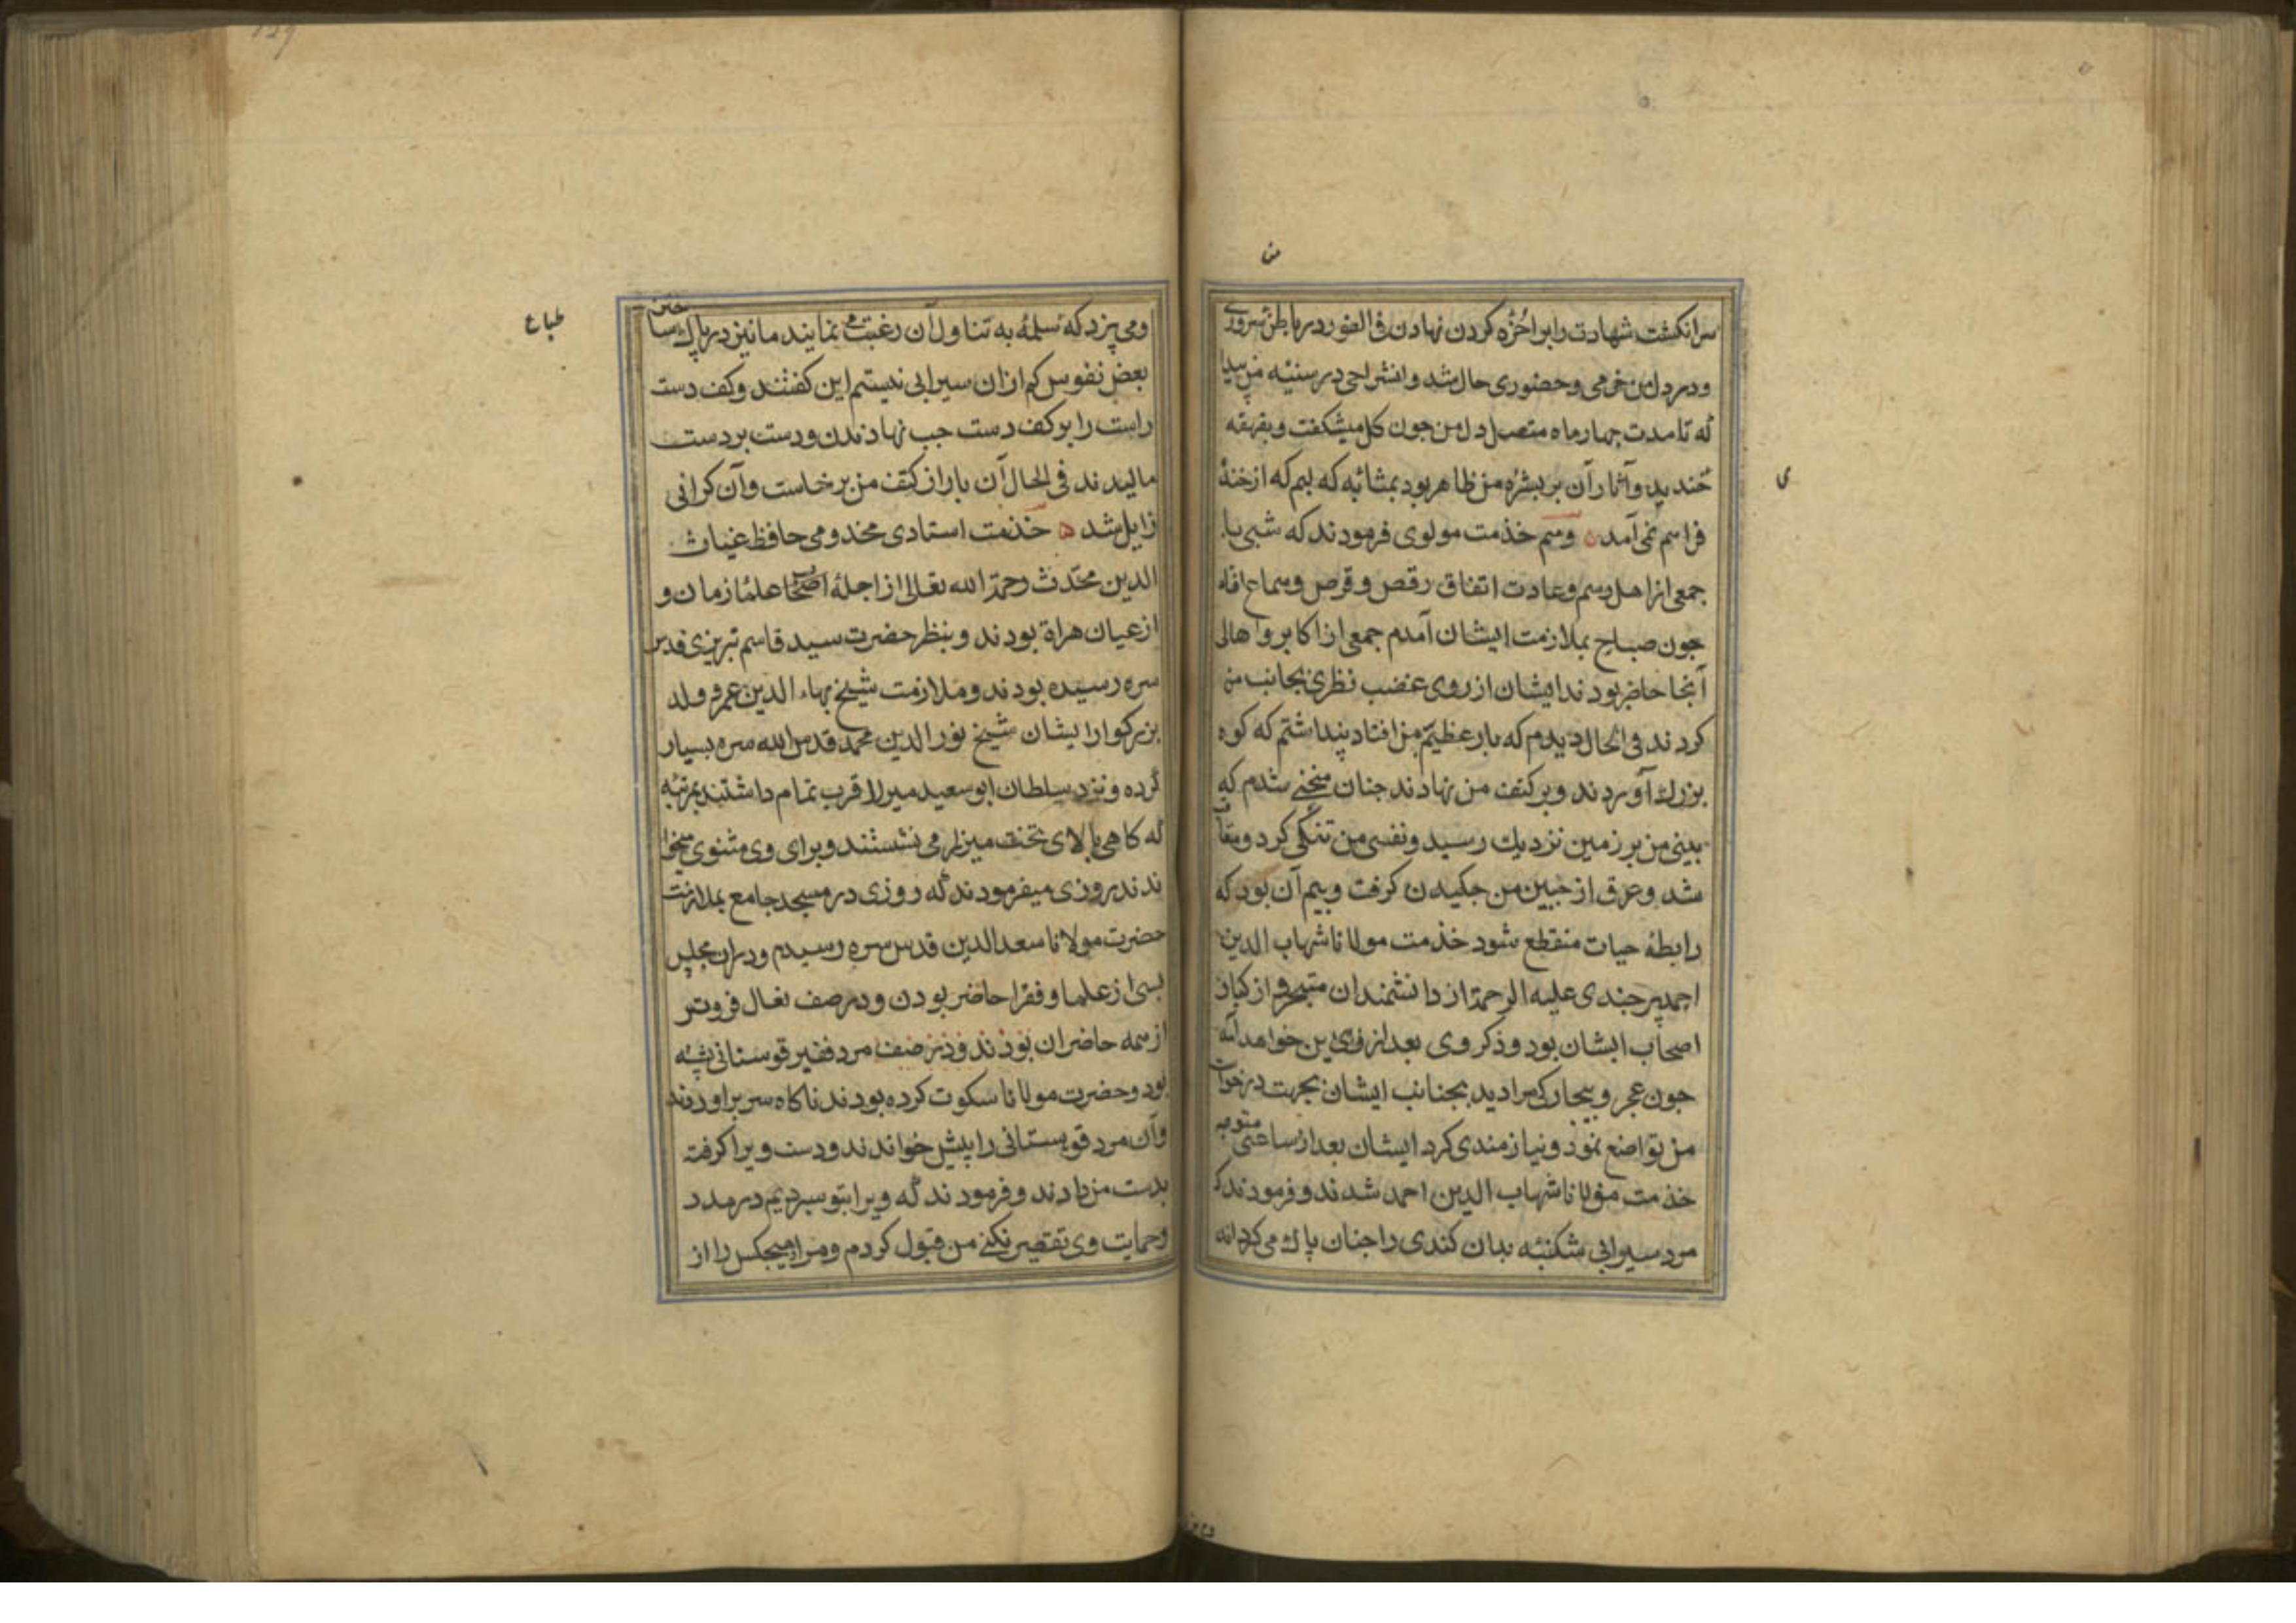 سرانکشت شهادت را برا خُرُه کردن نهادن فی الفور در باطن سروری
ودر دل من خرمی وحضوری حال شد وانشراحی در سنیه من پیدا
که تا مدت چهار ماه متصل دل من جون کل میشکفت وبقهقه
خندید وآثار آن بر بشرۀ من ظاهر بود بمثابۀ که لبم که از خندۀ
فراهم نمی آمد وهم خذمت مولوی فرمودند که شبی با
جمعی از اهل رسم وعادت اتفاق رقص وقرص وسماع افتاد
جون صباح بملازمت ایشان آمدم جمعی از اکابر واهالی
آنجا حاضر بودند ایشان از روی غضب نظری بجانب من
کردند فی الحال دیدم که بار عظیم بر من افتاد پنداشتم که کوه
بزرك آوردند وبر کتف من نهادند جنان منحنی شدم که
بینی من بر زمین نزدیك رسید ونفس من تنکی کرد
شد وعرق از جبین من جکیدن کرفت وبیم آن بود که
رابطۀ حیات منقطع شود خذمت مولانا شهاب الدین
احمد برجندی علیه الرحمة از دانشمندان متبحر واز کبار
اصحاب ایشان بود وذکر وی بعد ازین خواهد آمد
جون عجز وبیچارکی مرا دید بجناب ایشان بجهت درخواست
من تواضع نمود ونیازمندی کرد ایشان بعد از ساعتی متوجه
خذمت مولانا شهاب الدین احمد شدند وفرمودند که
مرد سیرابی شکنبه بدان کندی را جنان پاك می کرداند
ومی پزد که همه به تناول آن رغبت می نمایند ما نیز در پاك ساختن
بعض نفوس کم ازان سیرابی نیستیم این کفتند وکف دست
راست را بر کف دست جب نهادندن ودست بر دست
مالیدند فی الحال آن بار از کتف من برخاست وآن کرانی
زایل شد خذمت استادی مخدومی حافظ غیاث
الدین محدّث رحمة الله تعالی از اجلۀ اصحاب علما زمان و
از عیان هراة بودند وبنظر حضرت سید قاسم تبریزی قدس
سره رسیده بودند وملازمت شیخ بهاء الدین عمر وولد
بزرکوار ایشان شیخ نور الدین محمد قدس الله سره بسیار
کرده ونزد سلطان ابوسعید میرزا قرب تمام داشتند بمرتبۀ
که کاهی بالای تخت میرزا می نشستند وبرای وی مثنوی میخوا
ندند روزی میفرمودند که روزی در مسجد جامع بملازمت
حضرت مولانا سعد الدین قدس سره رسیدم ودران مجلس
بسی از علما وفقرا حاضر بودن ودر صف نعال فروتر
از همه حاضران بودند ودر صف مرد فقیر قوستانی
بود وحضرت مولانا سکوت کرده بودند ناکاه سر براوردند
وآن مرد قوبستانی را پیش خواندند ودست ویرا کرفته
بدست من دادند وفرمودند که ویرا بتو سپردیم در مدد
وحمایت وی تقصیر نکنی من قبول کردم ومرا وهیجکس را از
من
ی
طباع